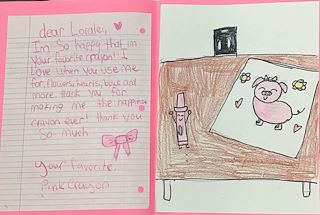 dear Loralei,
Im so happy that im
Your favorite crayon! I
Love when you use me
for, flowers, hearts, bows and
more. thank you for
making me the happiest
crayon ever! thank you
So much
Your favorite,
Pink Crayon